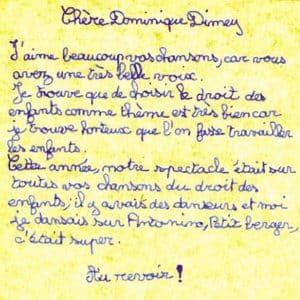 Chère Dominique Dimey
J'aime beaucoup vos chansons, car vous
avez une très belle voix.
Je trouve que de choisir le droit des
enfants comme thème est très bien car
je trouve honteux que l'on fasse travailler
les enfants.
Cette année, notre spectacle était sur
toutes vos chansons du droit des
enfants; il y avais des danseurs et moi
je dansais sur Antonino, Petit berger,
c'était super.
Au revoir!